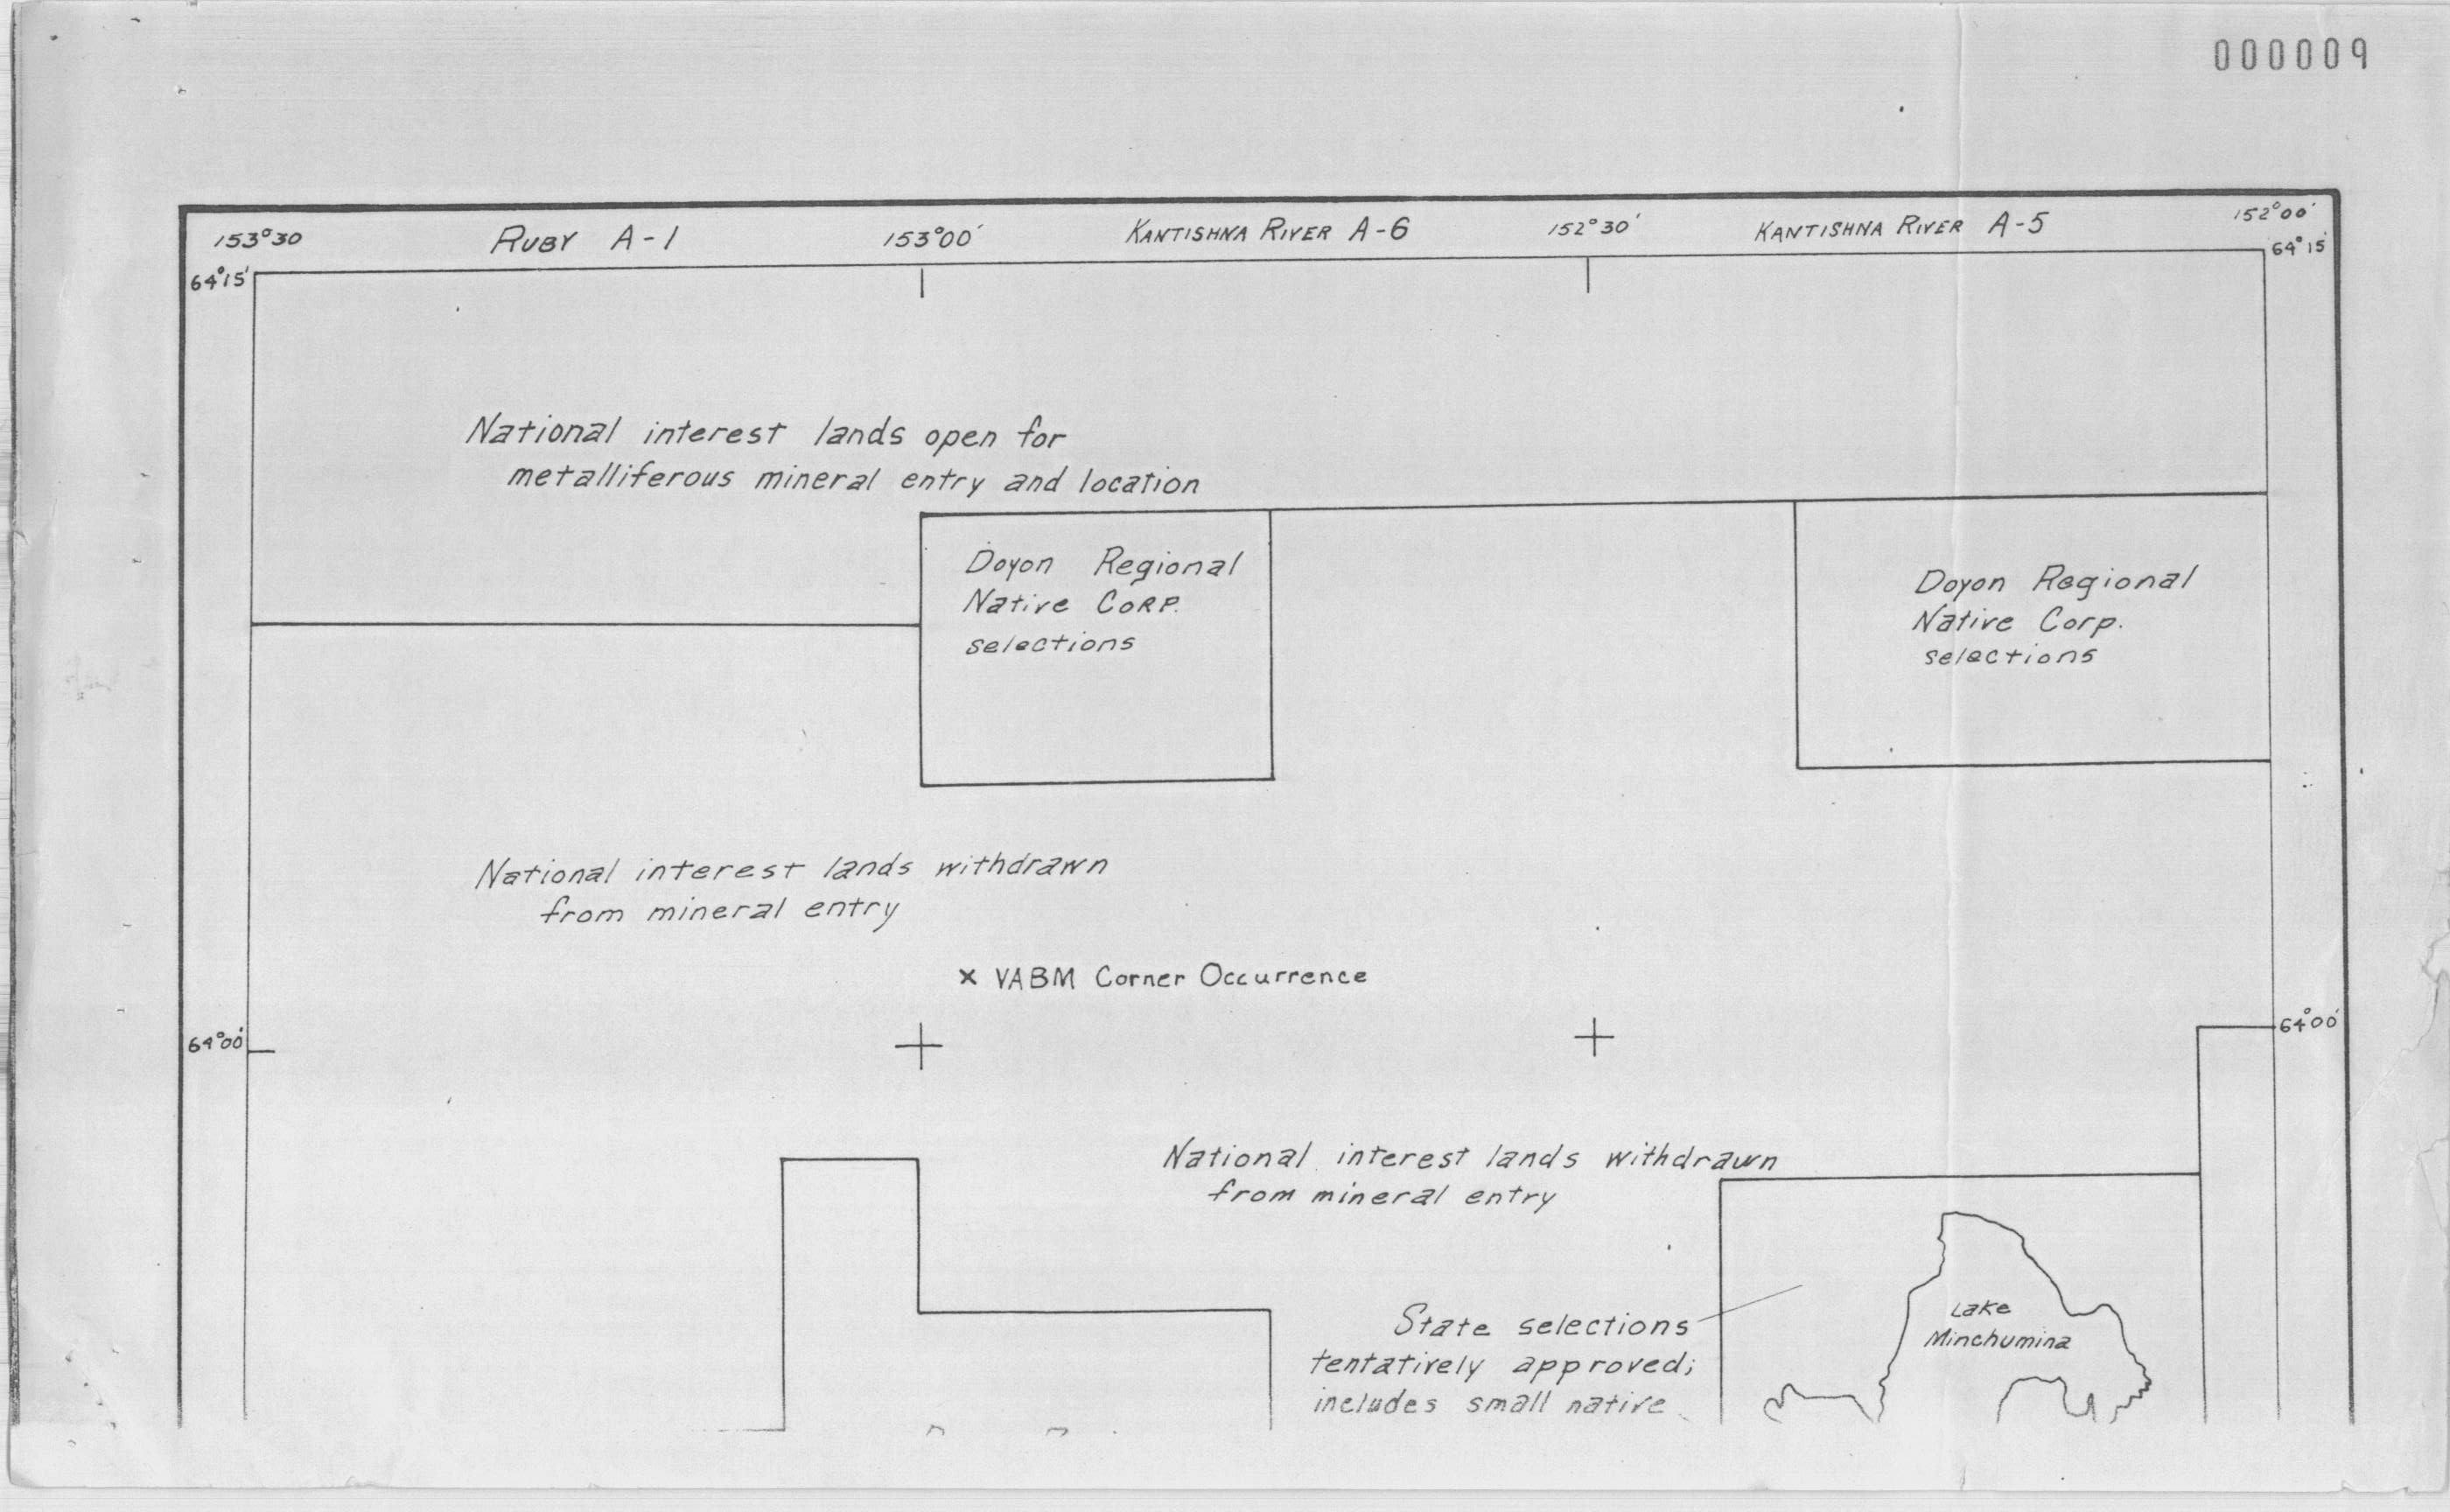 000009
153°30 RUBY A-1 153°00' KANTISHNA RIVER A-6 152°30' KANTISHNA RIVER A-5 152°00'
64°15' 64°15'
National interest lands open for
metalliferous mineral entry and location
Doyon Regional
Native CORP.
selections
Doyon Regional
Native Corp.
selections
National interest lands withdrawn
from mineral entry
x VABM Corner Occurrence
64°00' 64°00'
National interest lands withdrawn
from mineral entry
State selections
tentatively approved;
includes small native
Lake
Minchumina